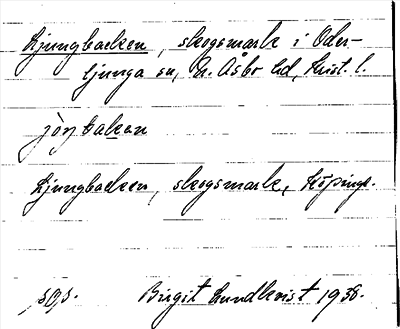 Ljungbacken, skogsmark i Oder-
ljunga sn, N. Åsbo hd, Krist. l.
jöŋbakan
Ljungbacken, skogsmark, Köpinge.
sgs. Birgit Lundkvist 1938.